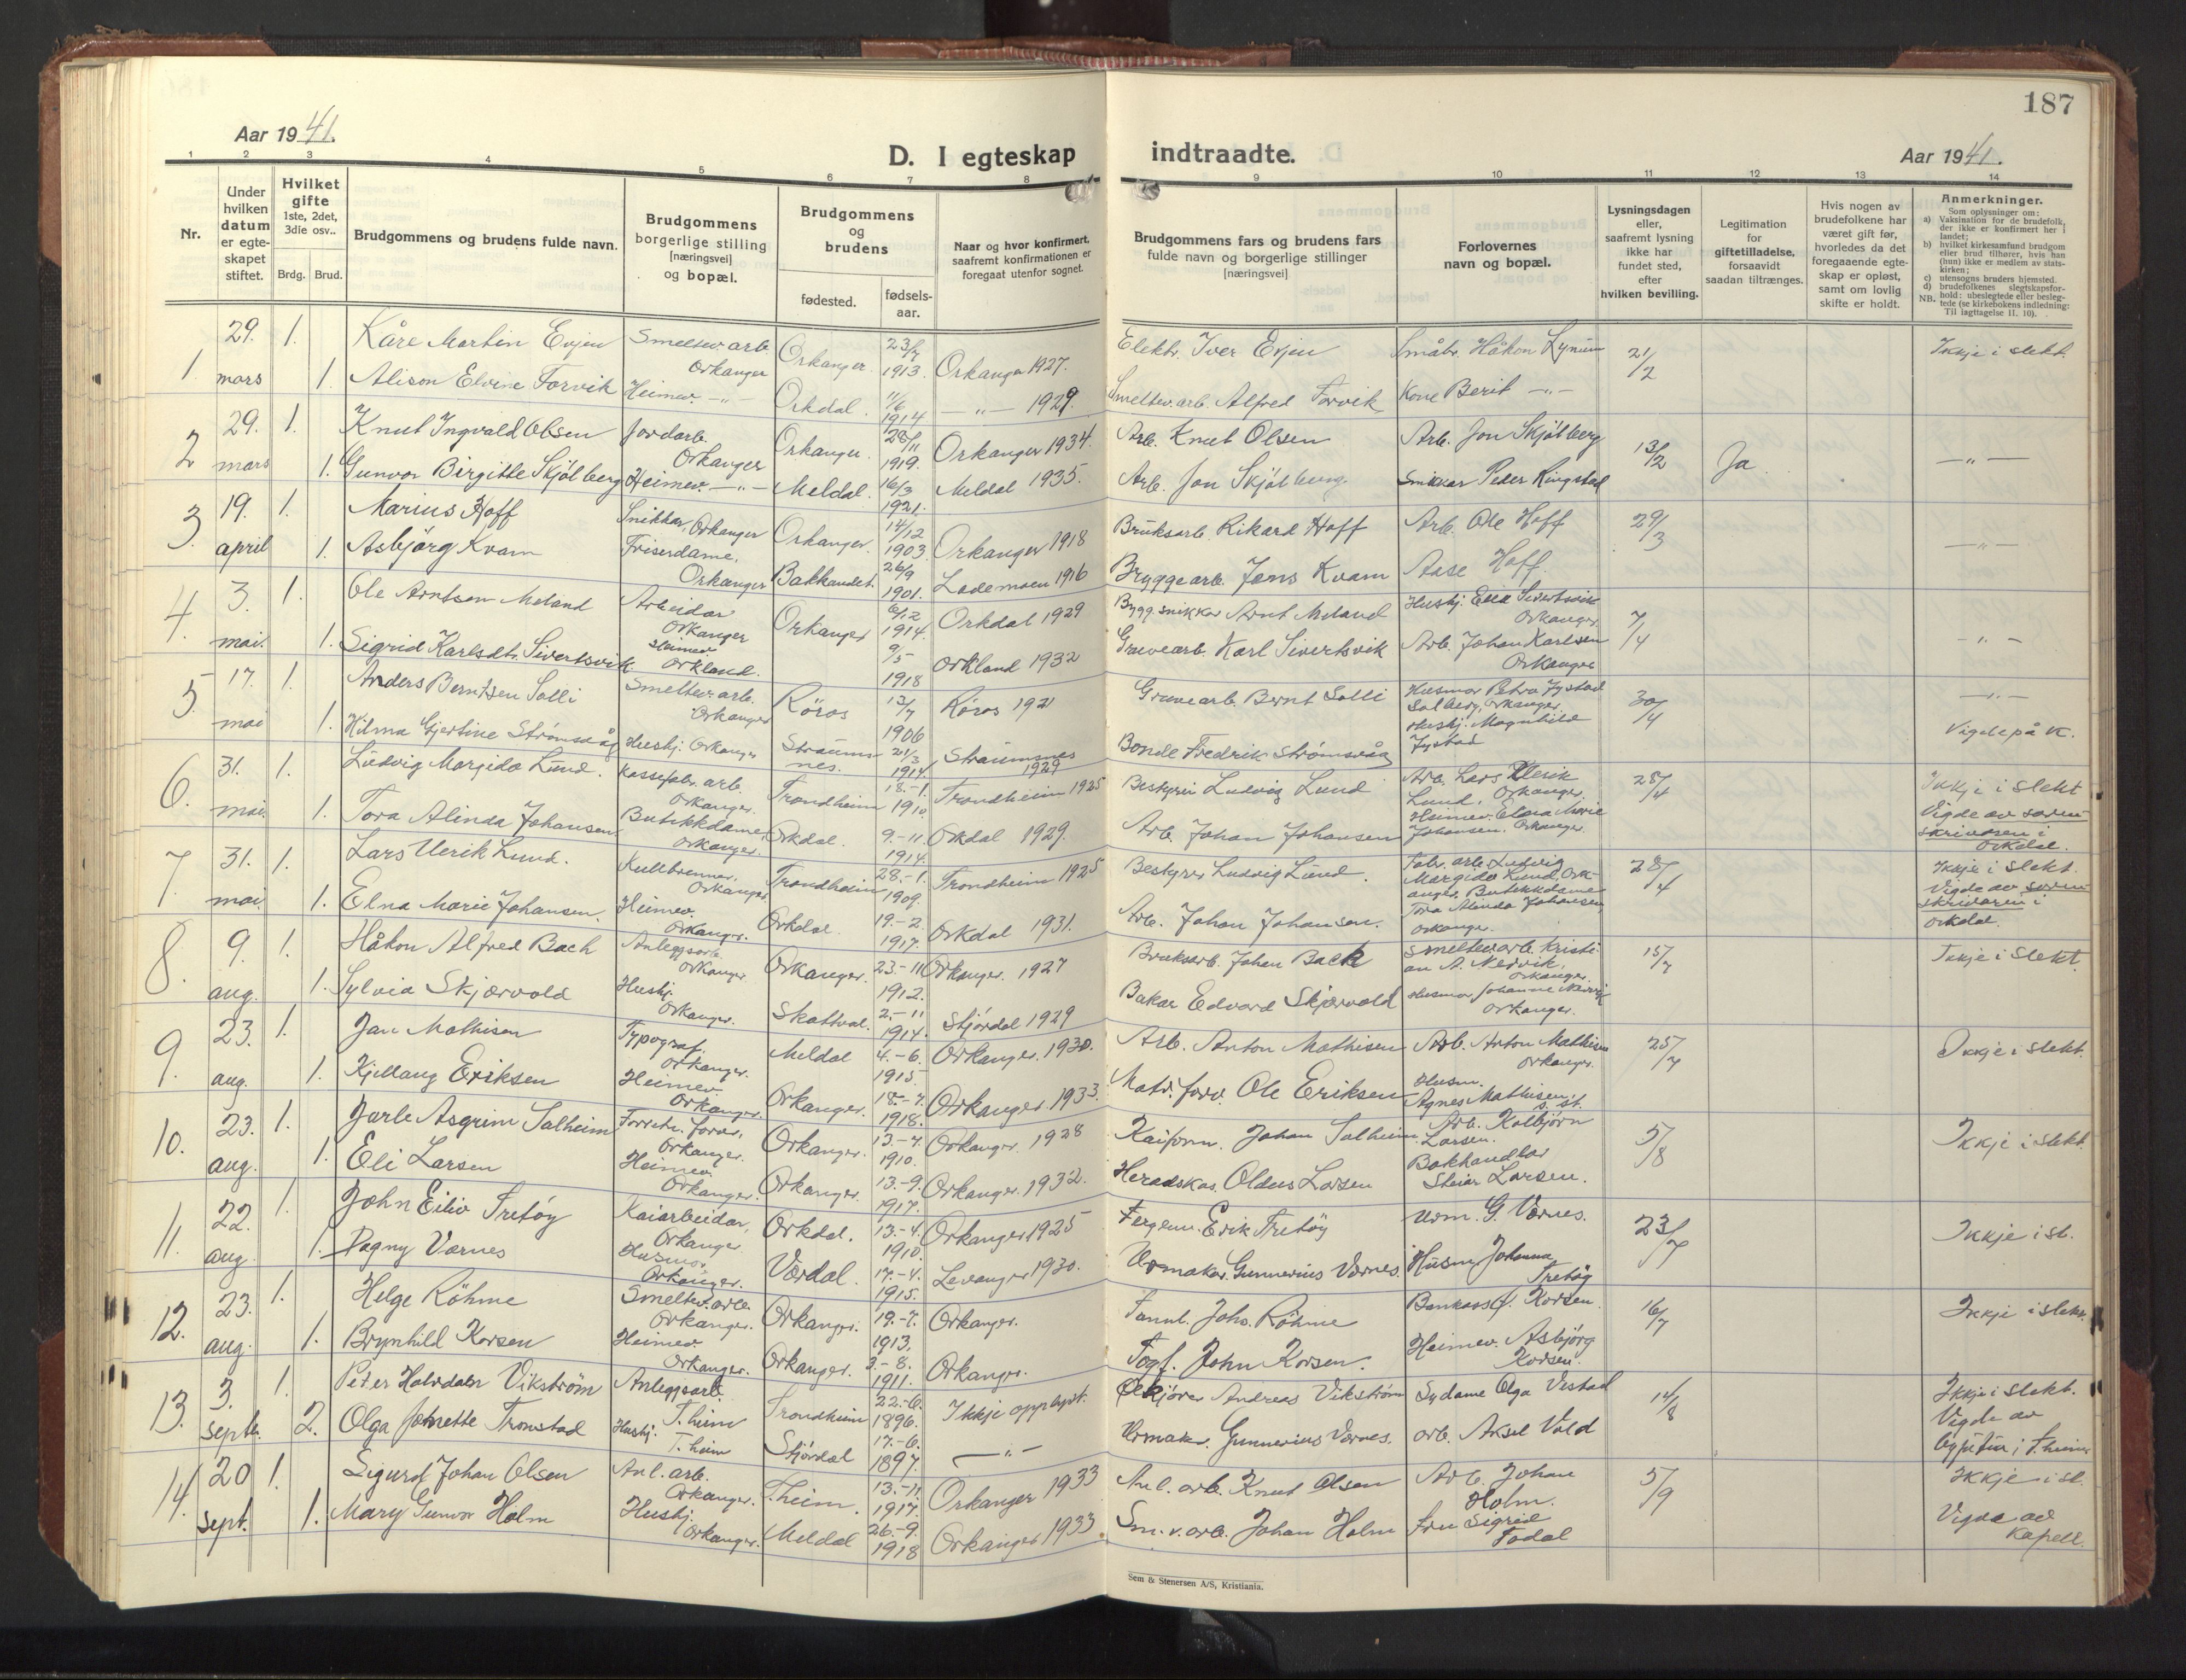 187
Aar 1941.
D. I egteskap indtraadte.
Aar 1941.
1 2 3 4 5 6 7 8 9 10 11 12 13 14
Nr.
Under hvilken datum er egte-skapet stiftet.
Hvilket gifte 1ste, 2det, 3die osv..
Brdg. Brud.
Brudgommens og brudens fulde navn.
Brudgommens borgerlige stilling [næringsvei] og bopæl.
Brudgommens og brudens
fødested.
fødsels-aar.
Naar og hvor konfirmert, saafremt konfirmationen er foregaat utenfor sognet.
Brudgommens fars og brudens fars fulde navn og borgerlige stillinger [næringsvei]
Forlovernes navn og bopæl.
Lysningsdagen eller, saafremt lysning ikke har fundet sted, efter hvilken bevilling.
Legitimation for giftetilladelse, forsaavidt saadan tiltrænges.
Hvis nogen av brudefolkene har været gift før, hvorledes da det foregaaende egte-skap er opløst, samt om lovlig skifte er holdt.
Anmerkninger.
Som oplysninger om:
a) Vaksination for de brudefolk, der ikke er konfirmert her i landet;
b) hvilket kirkesamfund brudgom eller brud tilhører, hvis han (hun) ikke er medlem av stats-kirken;
c) utensogns bruders hjemsted.
d) brudefolkenes slegtskapsfor-hold: ubeslegtede eller besleg-tede (se kirkebokens indledning:
NB. Til iagttagelse II. 10).
1. 29. mars 1. Kåre Martin Evjen Smeltev.arb. Orkanger Orkanger 23/7 1913 Orkanger 1927. Elektr. Iver Evjen Småbr. Håkon Lynum 21/2 Ikkje i slekt.
1. Alison Elvine Forvik Heimev. -"- Orkdal. 11/6 1914 -"- 1929. Smeltev.arb. Alfred Forvik Kone Berit -"-
2 29. mars 1. Knut Ingvald Olsen Jordarb. Orkanger Orkanger. 28/11 1919. Orkanger 1934. Arb. Knut Olsen Arb. Jon Skjölberg 13/2 Ja. -"-
1. Gunvor Birgitte Skjölberg Heimev. -"- Meldal. 16/3 1921. Meldal 1935. Arb. Jon Skjölberg Snikkar Peder Ringstad
3. 19. april 1. Marius Hoff Snikkar, Orkanger Orkanger. 14/12 1903. Orkanger 1918 Bruksarb. Rikard Hoff Arb. Ole Hoff 29/3 -"-
1. Asbjørg Kvam Friserdame, Orkanger Bakkandet. 26/9 1901. Lademoen 1916 Bryggearb. Jens Kvam Aase Hoff.
4. 3. mai. 1. Ole Arntsen Meland Arbeidar Orkanger Orkanger 6/12 1914. Orkdal 1929 Bygg.snikkar Arnt Meland Hushj. Ella Sivertsvik Orkanger. 7/4 -"-
1. Sigrid Karlsdtr. Sivertsvik. Heimev. Orkland. 9/5 1918 Orkland 1932 Gruvearb. Karl Sivertsvik Arb. Johan Karlsen Orkanger
5. 17. mai 1. Anders Berntsen Solli Smeltev.arb. Orkanger Röros 13/7 1906 Röros 1921 Gruvearb. Bernt Solli Husmor Petra Jystad Solberg, Orkanger. 30/4 -"-
1. Hilma Gjertine Strömsvåg Hushj. Orkanger Straumsnes. 21/3 1914. Straumsnes 1929 Bonde Fredrik Strömsvåg Hushj. Magnhild Jystad Vigde på K.
6. 31. mai. 1. Ludvig Margido Lund. Kassefabr. arb. Orkanger. Trondheim 18.-1. 1910 Trondheim 1925 Bestyrer Ludvig Lund Arb. Lars Ulerik Lund. Orkanger. 28/4 Ikkje i slekt
1. Tora Alinda Johansen Butikkdame Orkanger. Orkdal. 9.-11. 1914. Orkdal 1929. Arb. Johan Johansen Heimev. Elna Marie Johansen. Orkanger. Vigde av soren-skrivaren i Orkdal.
7 31. mai. 1. Lars Ulerik Lund. Kullbrennar. Orkanger Trondheim 28.-1. 1909. Trondheim 1925 Bestyrer Ludvig Lund. Fabr. arb. Ludvig Margido Lund, Ork-anger. Butikkdame 28/4 Ikkje i slekt.
1. Elna Marie Johansen. Heimev. Orkanger. Orkdal. 19.-2. 1917. Orkdal 1931. Arb. Johan Johansen. Tora Alinda Johansen, Orkanger. Vigde av soren-skrivaren i Orkdal.
8. 9. aug. 1. Håkon Alfred Bach Anleggsarb. Orkanger Orkanger. 23.-11 1912. Orkanger. 1927 Bruksarb. Johan Bach Smeltev.arb. Kristi-an A. Nervik, Orkanger. 15/7 Ikkje i slekt.
1. Sylvia Skjærvold Hushj. Orkanger. Skatval. 2.-11 1914. Stjördal 1929 Bakar Edvard Skjærvold Husmor Johanne Nervik Orkanger.
9. 23. aug. 1. Jan Mathisen Typograf. Orkanger. Meldal 4.-6. 1915. Orkanger. 1930. Arb. Anton Mathisen Arb. Anton Mathisen Orkanger. 25/7 Ikkje i slekt.
1. Kjellaug Eriksen Heimev. Orkanger. Orkanger. 18.-7. 1918. Orkanger. 1933. Matr.forv. Ole Eriksen Husm. Agnes Mathisen s. st.
10. 23. aug. 1. Jarle Asgrim Solheim Forretn. forer, Orkanger. Orkanger. 13.-7. 1910. Orkanger 1928 Kaiform. Johan Solheim Arb. Kolbjörn Larsen. 5/8 Ikkje i slekt
1. Eli Larsen Heimev. Orkanger. Orkanger. 13.-9. 1917. Orkanger. 1932. Heradskas. Oldus Larsen Bokhandlar Steinar Larsen.
11. 22. aug. 1. John Eiliv Tretöy Kaiarbeidar, Orkanger Orkdal. 13.-4. 1910. Orkanger 1925 Fergem. Erik Tretöy Urm. G. Værnes. 23/7 Ikkje i sl.
1. Dagny Værnes Husmor. Orkanger. Værdal. 17.-4. 1915. Levanger 1930. Urmaker. Gunnerius Værnes. Husm. Johanna Tretöy
12. 23. aug. 1. Helge Röhme Smeltev. arb. Orkanger. Orkanger. 19.-7. 1913, Orkanger. Tannl. Johs. Röhme Bankass. J. Korsen. 16/7 Ikkje i slekt.
1. Brynhild Korsen Heimev. Orkanger. Orkanger. 3.-8. 1911. Orkanger. Fogf. John Korsen. Heimev. Asbjörg Korsen.
13. 3. septb. 1. Peter Halvdahr Vikström Anleggsarb. T.heim Trondheim 22.-6. 1896. Ikkje opplyst. Andreas Vikström Sydame Olga Vestad 14/8 Ikkje i slekt.
2. Olga Jonette Tronstad Hushj. T.heim Stjördal 17.-6. 1897. -"- Urmaker. Gunnerius Værnes. arb. Aksel Vold Vigde av byfuten i T.heim
14. 20 sept. 1. Sigurd Johan Olsen Anl. arb. Orkanger. T.heim. 13.-11 1917. Orkanger 1933 Anl. arb. Knut Olsen Arb. Johan Holm. 5/9 Ikkje i sl.
1. Mary Gunvor Holm Hushj. Orkanger. Meldal 26.-9. 1918 Orkanger 1933. Sm.v.arb. Johan Holm Fru Sigrid Fodal Vigde av kapell.
Sem & Stenersen A/S, Kristiania.